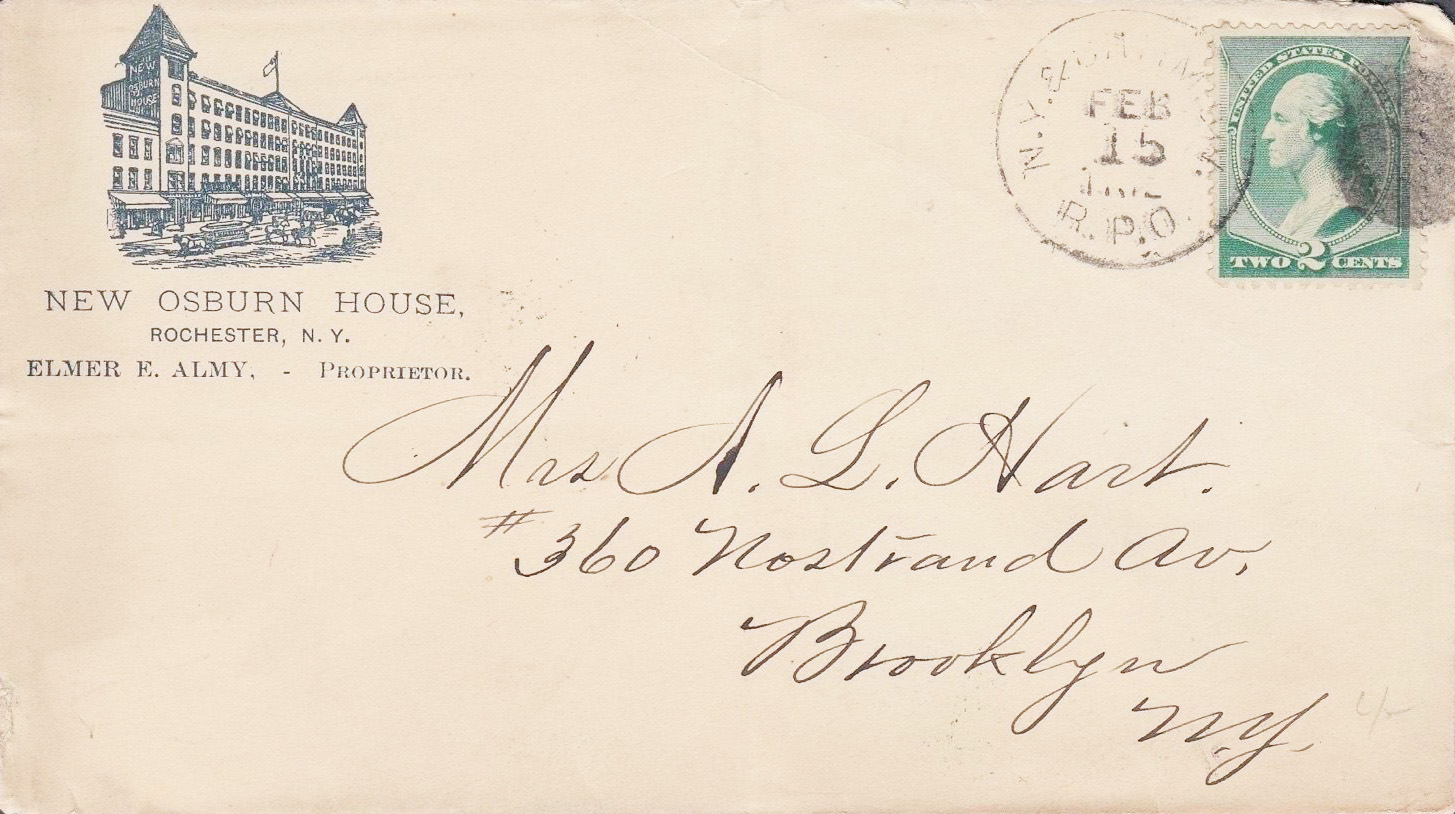 NEW
OSBURN
HOUSE
NEW OSBURN HOUSE,
ROCHESTER, N. Y.
ELMER E. ALMY, - PROPRIETOR.
N.Y. &
FEB
15
R.P.O.
UNITED STATES POSTAGE
TWO 2 CENTS
Mrs A. L. Hart.
# 360 Nostrand Av,
Brooklyn
N.Y.